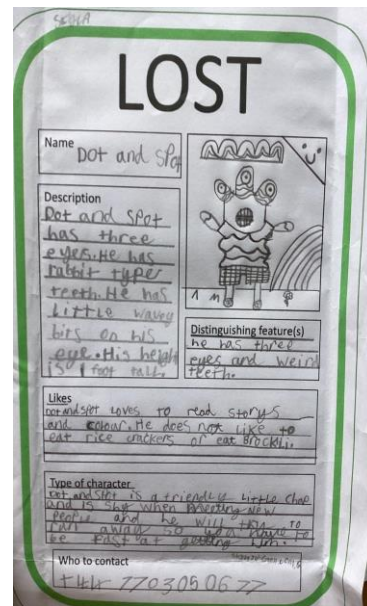 LOST
Name
Dot and Spot
Description
Dot and Spot
has three
eyes. He has
rabbit types
teeth. He has
little wavey
bits on his
eye. His height
is 1 foot tall.
1 m
Distinguishing feature(s)
he has three
eyes and weird
teeth.
Likes
Dot and Spot loves to read storys
and colour. He does not like to
eat rice crackers or eat Brockli.
Type of character
Dot and Spot is a friendly little chap
and is shy when meeting new
people and he will to
run away so you have to
be fast at getting him.
Who to contact
+44 7703050677